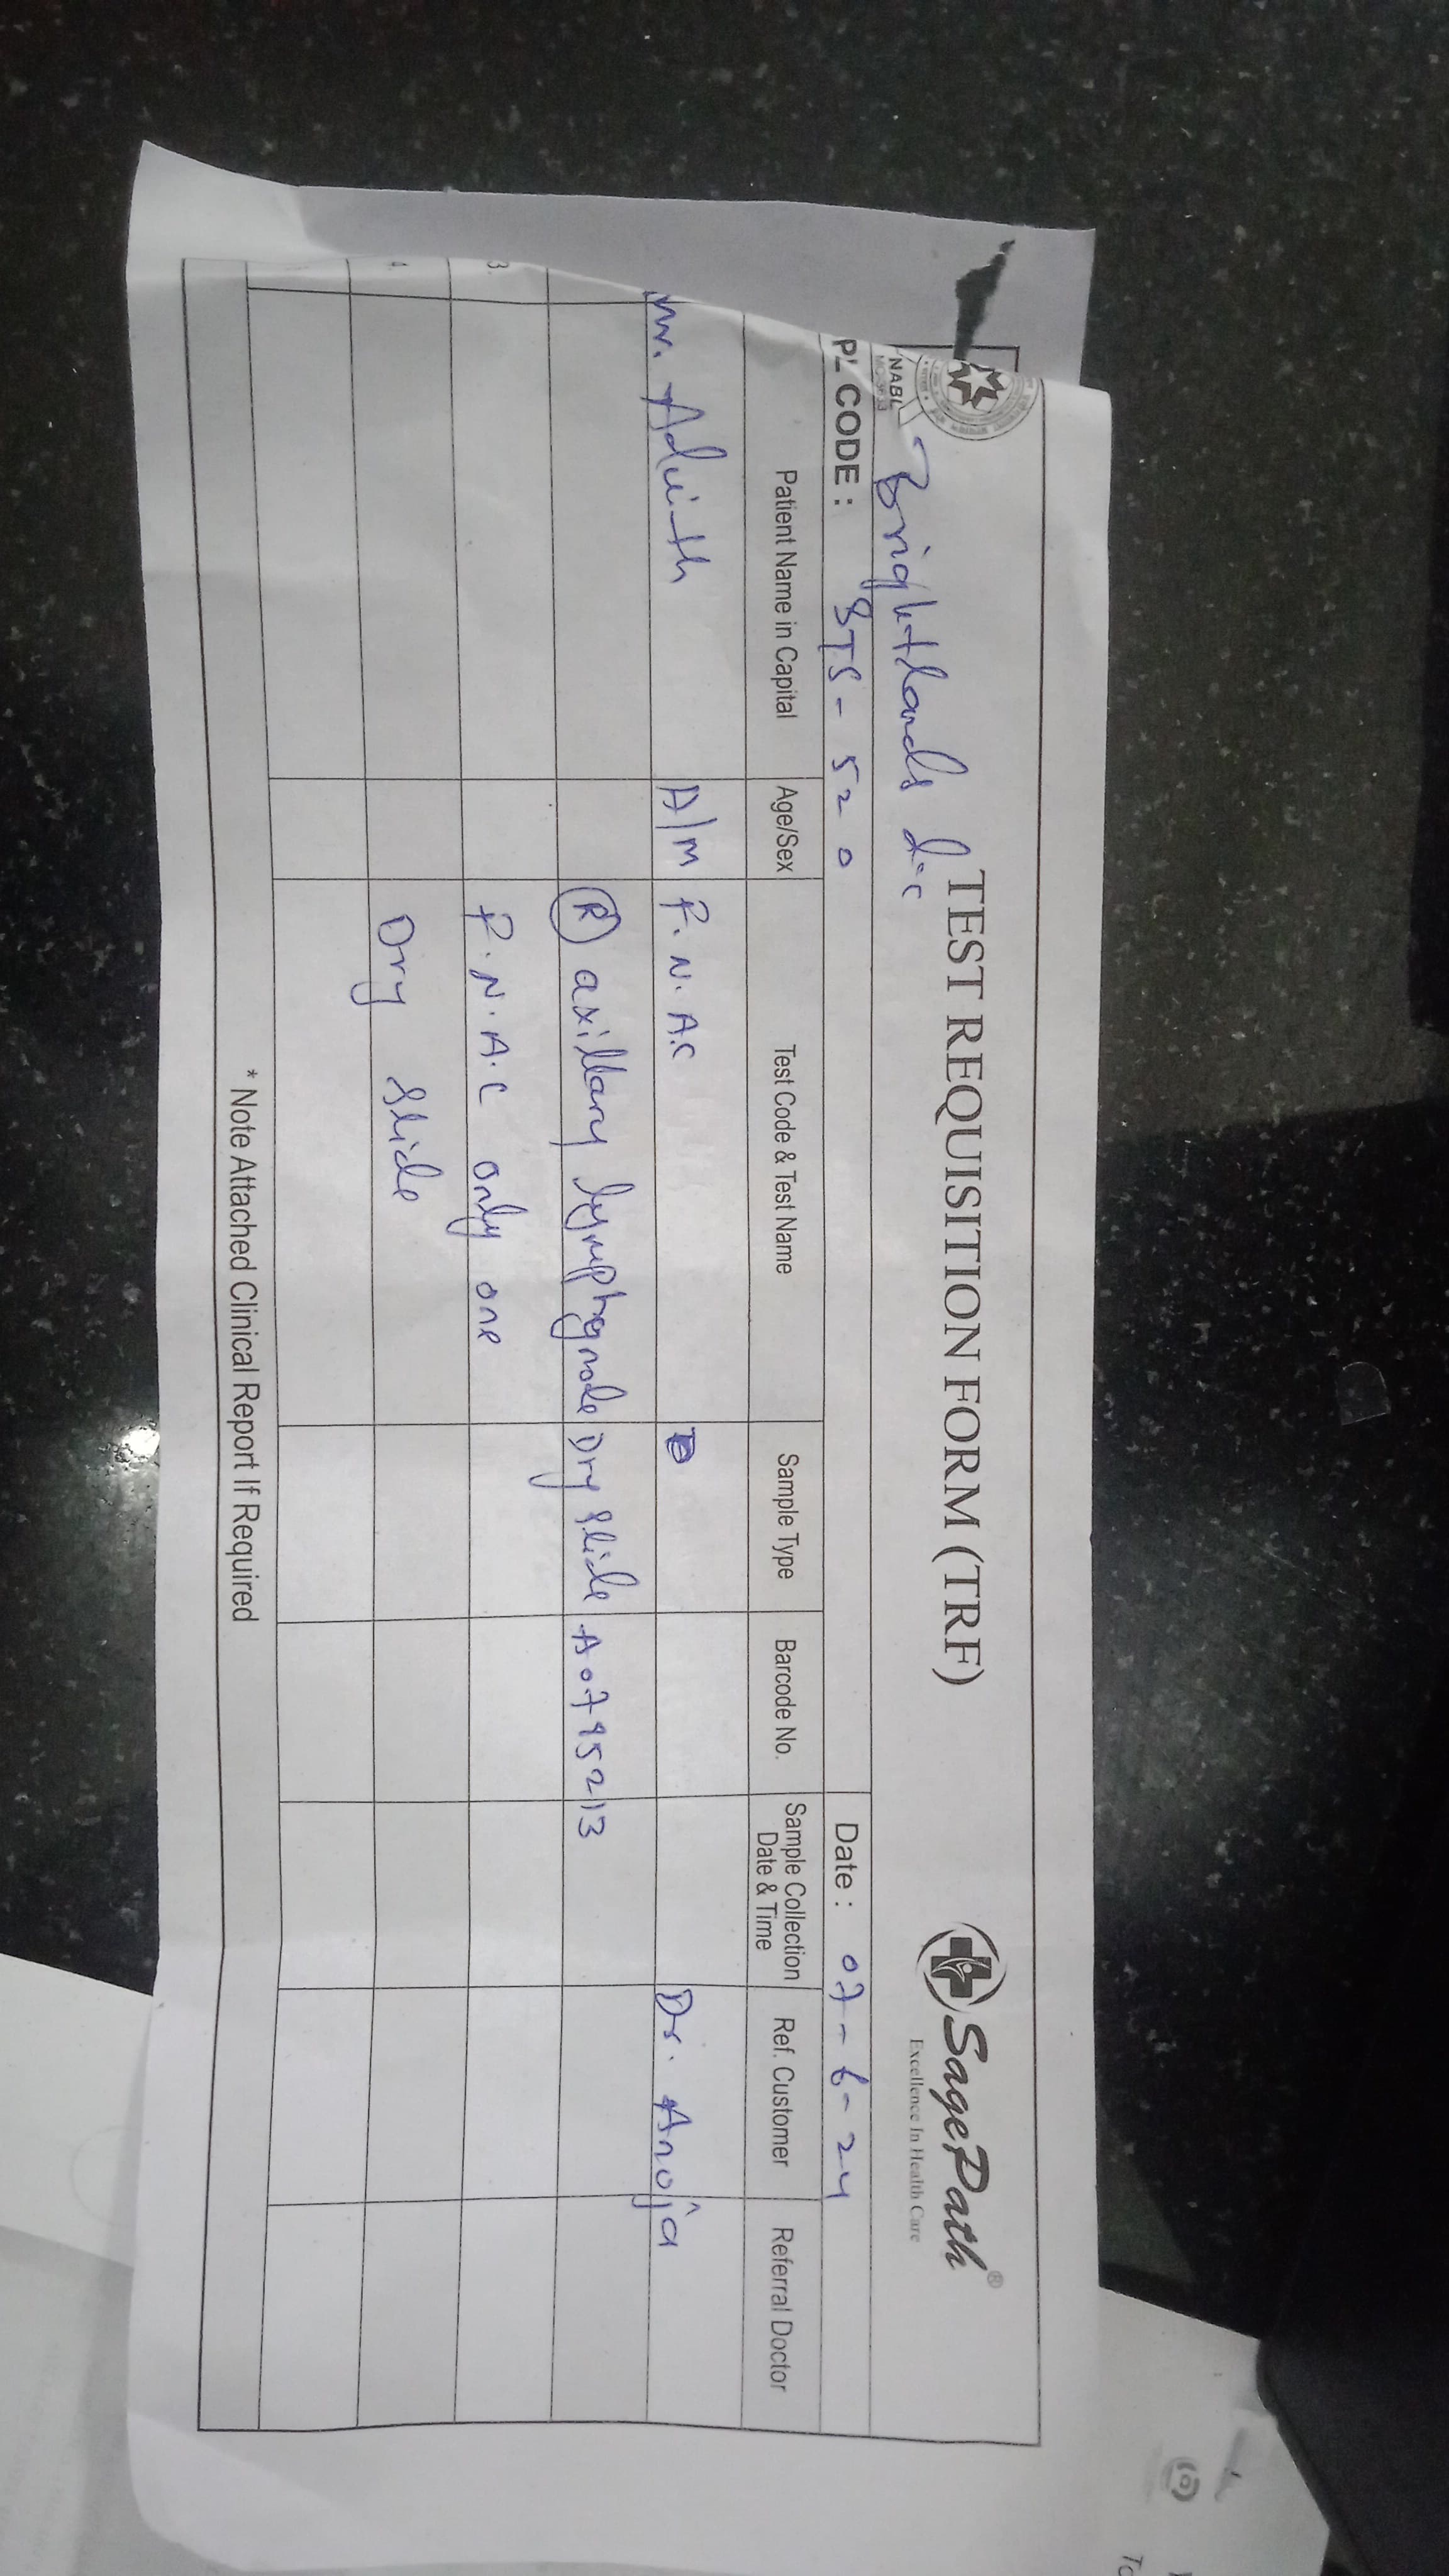 TEST REQUISITION FORM (TRF)
SagePath®
Excellence In Health Care
NABL
Brightlands d.c
PL CODE : STS - 520
Date : 07-6-24
Patient Name in Capital Age/Sex Test Code & Test Name Sample Type Barcode No. Sample Collection Date & Time Ref. Customer Referral Doctor
Mr. A/M F.N.A.C Dr. Anoja
(R) axillary lymphgnode Dry Slide A0795213
3. F.N.A.C only one
4. Dry Slide
* Note Attached Clinical Report If Required